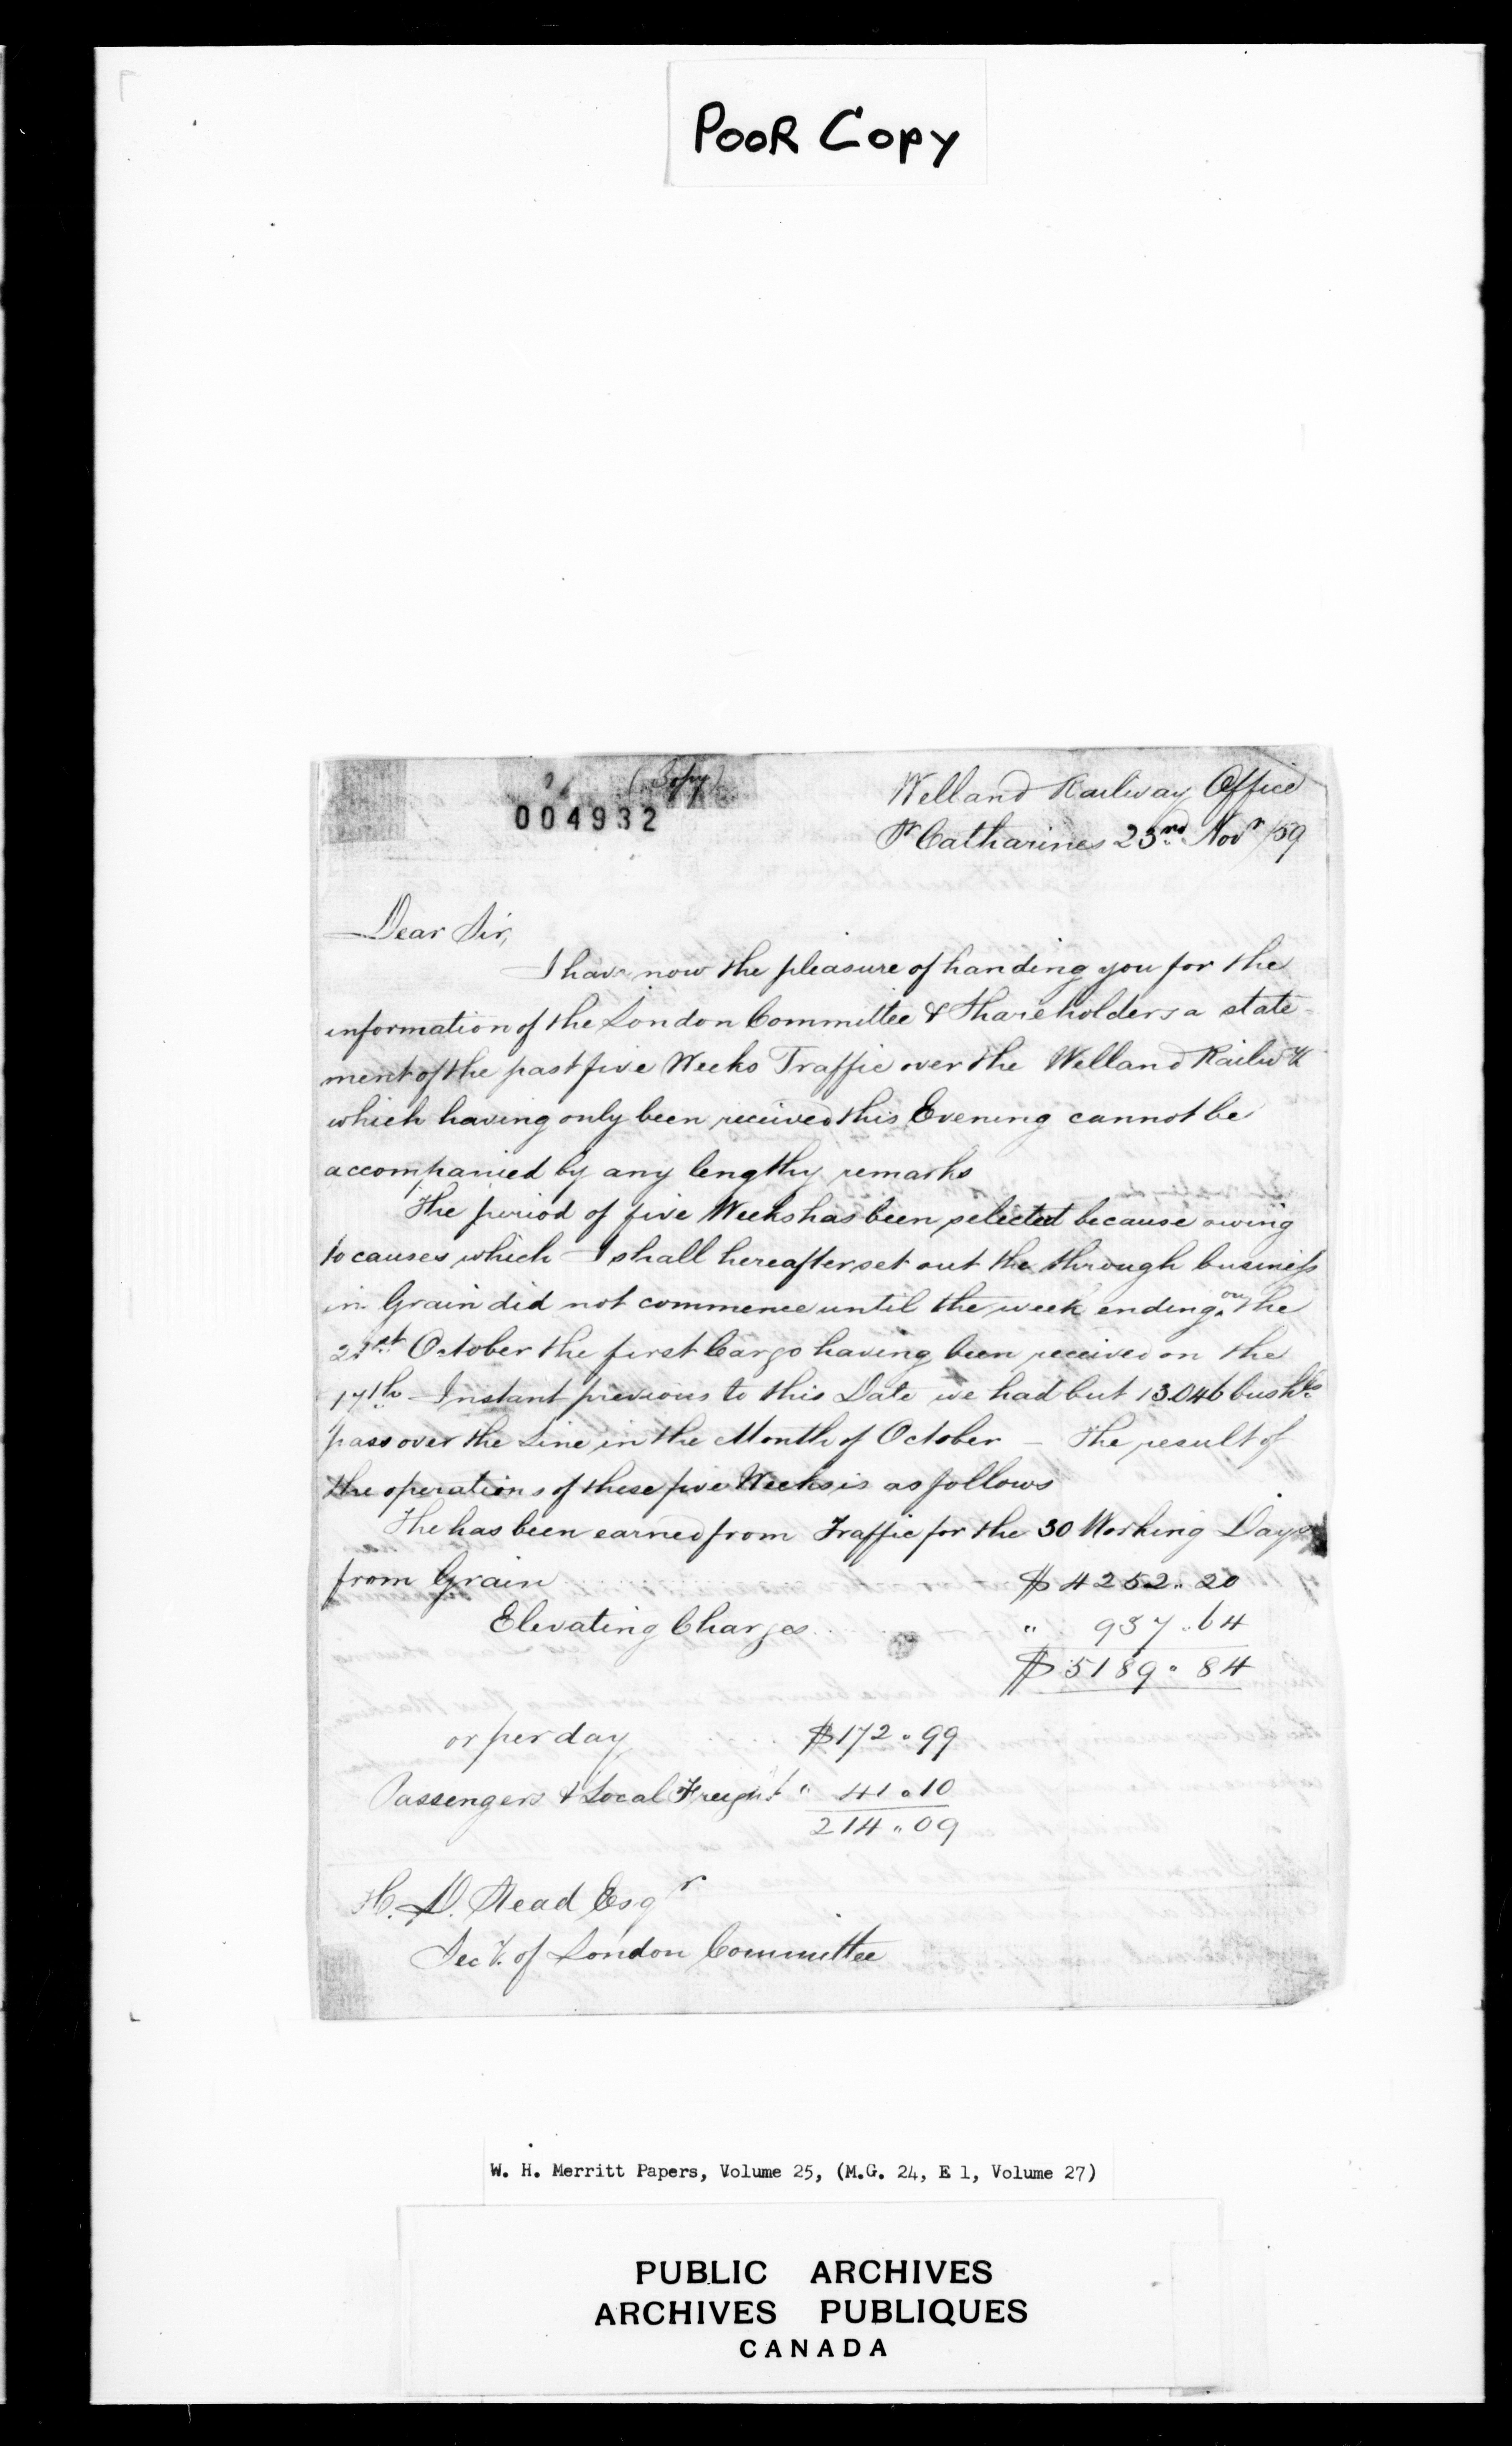 POOR COPY
(Copy)
004932
Welland Railway Office
St Catharines 23rd Novr /59
Dear Sir,
I have now the pleasure of handing you for the
information of the London Committee & Shareholders a state-
ment of the past five Weeks Traffic over the Welland Railwy
which having only been received this Evening cannot be
accompanied by any lengthy remarks
The period of five Weeks has been selected because owing
to causes which I shall hereafter set out the through business
in Grain did not commence until the week ending on the
21st October the first Cargo having been received on the
17th Instant previous to this Date we had but 13.046 bushls
pass over the Line in the Month of October — The result of
the operations of these five Weeks is as follows
The has been earned from Traffic for the 30 Working Days
from Grain $4252.. 20
Elevating Charges " 937..64
$5189.. 84
or per day $172..99
Passengers & Local Freight " 41..10
214..09
H. D. Stead Esqr
Secy. of London Committee
W. H. Merritt Papers, Volume 25, (M.G. 24, E 1, Volume 27)
PUBLIC ARCHIVES
ARCHIVES PUBLIQUES
CANADA